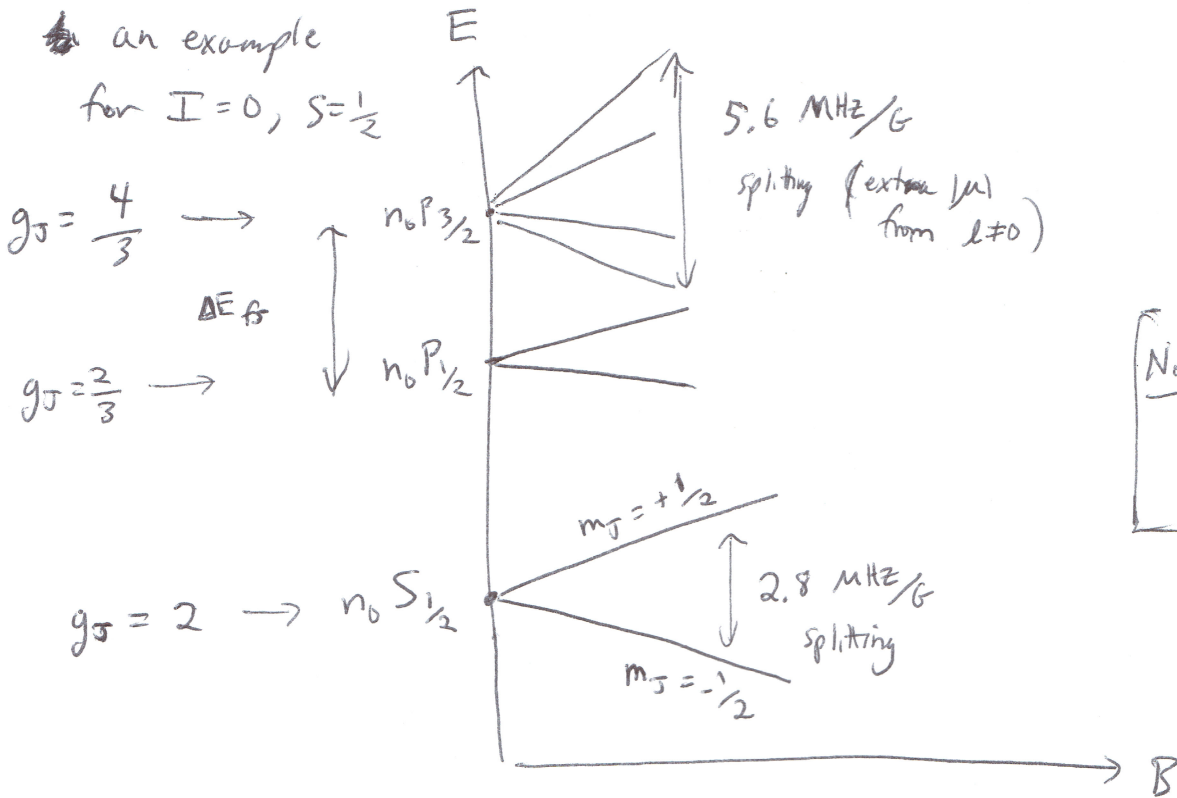 an example
for I = 0, S = 1/2
E
5.6 MHz/G
splitting (extra |μ|
from l≠0)
g_J = 4/3 →
n₀P3/2
ΔE fs
g_J = 2/3 →
n₀P1/2
m_J = +1/2
g_J = 2 → n₀ S1/2
2.8 MHz/G
splitting
m_J = -1/2
B